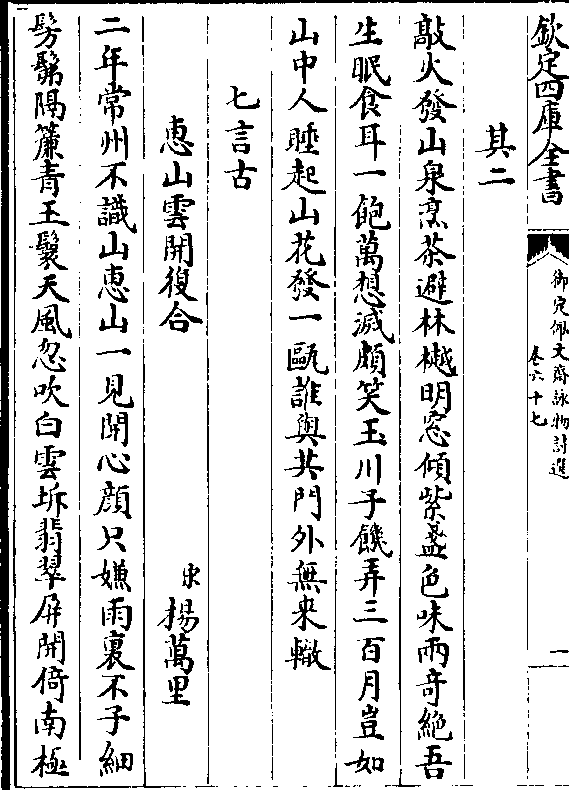 欽定四庫全書
御定佩文齋詠物詩選
卷六十七
一
其二
敲火發山泉烹茶避林樾明窓傾紫盞色味兩竒絶吾
生眠食耳一飽萬想滅頗笑玉川子饑弄三百月豈如
山中人睡起山花發一甌誰與共門外無來轍
七言古
惠山雲開復合
宋楊萬里
二年常州不識山惠山一見開心顔只嫌雨裏不子細
髣髴隔簾青玉鬟天風忽吹白雲坼翡翠屏開倚南極